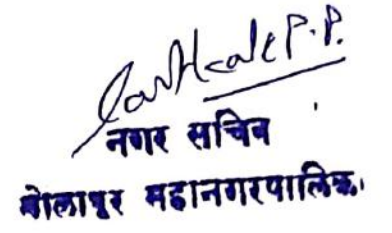 P.P.
नगर सचिव
सोलापूर महानगरपालिका.